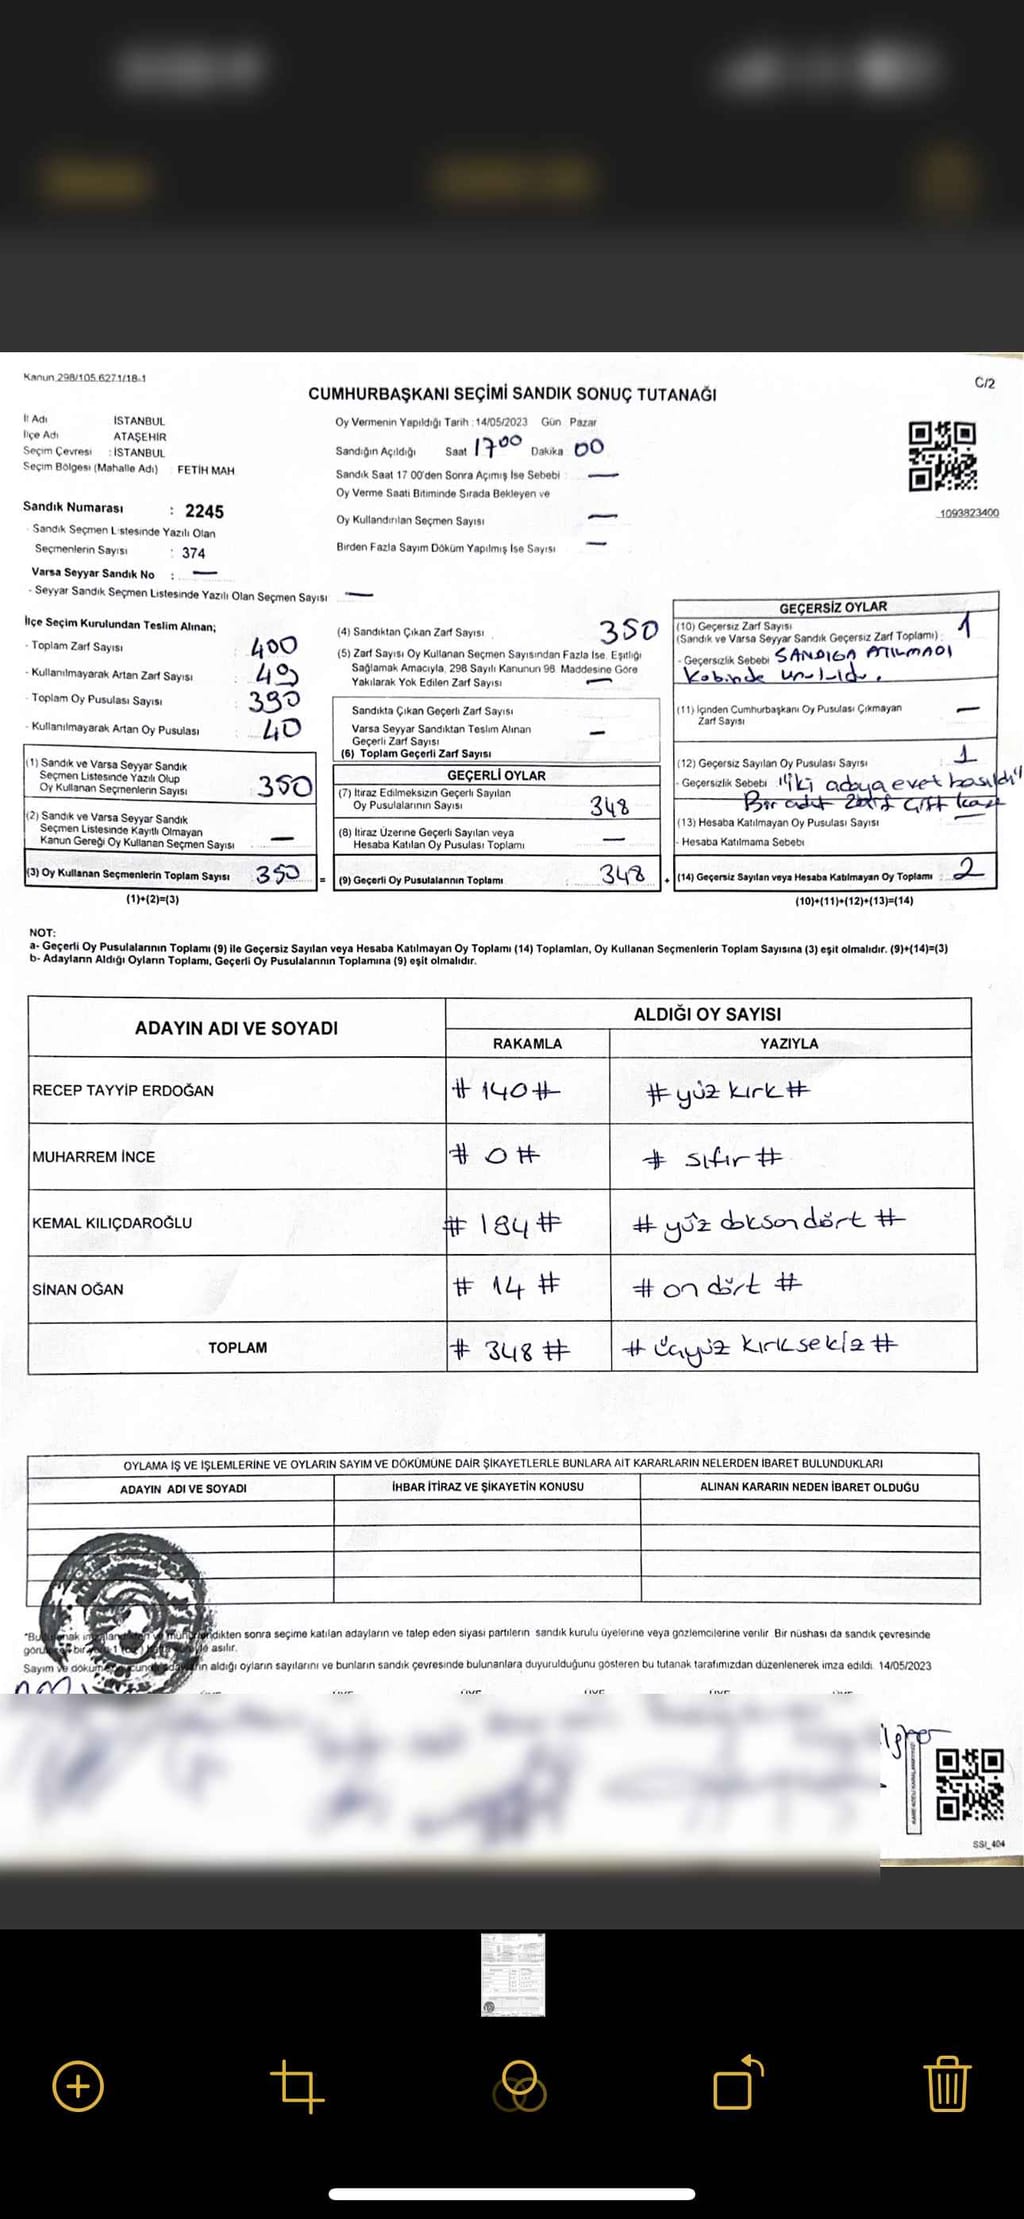 Kanun 298/105,6271/18-1
C/2
CUMHURBAŞKANI SEÇİMİ SANDIK SONUÇ TUTANAĞI
İl Adı İSTANBUL
İlçe Adı ATAŞEHİR
Seçim Çevresi : İSTANBUL
Seçim Bölgesi (Mahalle Adı) : FETİH MAH
Oy Vermenin Yapıldığı Tarih : 14/05/2023 Gün Pazar
Sandığın Açıldığı Saat 1700 Dakika 00
Sandık Saat 17 00'den Sonra Açımış İse Sebebi : —
Oy Verme Saati Bitiminde Sırada Bekleyen ve
Oy Kullandırılan Seçmen Sayısı —
Birden Fazla Sayım Döküm Yapılmış İse Sayısı —
1093823400
Sandık Numarası : 2245
- Sandık Seçmen Listesinde Yazılı Olan
Seçmenlerin Sayısı : 374
Varsa Seyyar Sandık No : —
- Seyyar Sandık Seçmen Listesinde Yazılı Olan Seçmen Sayısı —
İlçe Seçim Kurulundan Teslim Alınan;
- Toplam Zarf Sayısı : 400
- Kullanılmayarak Artan Zarf Sayısı : 49
- Toplam Oy Pusulası Sayısı : 390
- Kullanılmayarak Artan Oy Pusulası : 40
(1) Sandık ve Varsa Seyyar Sandık
Seçmen Listesinde Yazılı Olup
Oy Kullanan Seçmenlerin Sayısı : 350
(2) Sandık ve Varsa Seyyar Sandık
Seçmen Listesinde Kayıtlı Olmayan
Kanun Gereği Oy Kullanan Seçmen Sayısı —
(3) Oy Kullanan Seçmenlerin Toplam Sayısı : 350 =
(1)+(2)=(3)
(4) Sandıktan Çıkan Zarf Sayısı 350
(5) Zarf Sayısı Oy Kullanan Seçmen Sayısından Fazla İse, Eşitliği
Sağlamak Amacıyla, 298 Sayılı Kanunun 98. Maddesine Göre
Yakılarak Yok Edilen Zarf Sayısı —
Sandıkta Çıkan Geçerli Zarf Sayısı
Varsa Seyyar Sandıktan Teslim Alınan
Geçerli Zarf Sayısı —
(6) Toplam Geçerli Zarf Sayısı
GEÇERLİ OYLAR
(7) İtiraz Edilmeksizin Geçerli Sayılan
Oy Pusulalarının Sayısı 348
(8) İtiraz Üzerine Geçerli Sayılan veya
Hesaba Katılan Oy Pusulası Toplamı —
(9) Geçerli Oy Pusulalarının Toplamı : 348 +
GEÇERSİZ OYLAR
(10) Geçersiz Zarf Sayısı
(Sandık ve Varsa Seyyar Sandık Geçersiz Zarf Toplamı) : 1
- Geçersizlik Sebebi SANDIGA ATILMADI
Kabinde unutuldu.
(11) İçinden Cumhurbaşkanı Oy Pusulası Çıkmayan
Zarf Sayısı —
(12) Geçersiz Sayılan Oy Pusulası Sayısı 1
- Geçersizlik Sebebi "iki adaya evet basıldı"
Bir adet zarf çift kaşe
(13) Hesaba Katılmayan Oy Pusulası Sayısı —
- Hesaba Katılmama Sebebi
(14) Geçersiz Sayılan veya Hesaba Katılmayan Oy Toplamı : 2
(10)+(11)+(12)+(13)=(14)
NOT:
a- Geçerli Oy Pusulalarının Toplamı (9) ile Geçersiz Sayılan veya Hesaba Katılmayan Oy Toplamı (14) Toplamları, Oy Kullanan Seçmenlerin Toplam Sayısına (3) eşit olmalıdır. (9)+(14)=(3)
b- Adayların Aldığı Oyların Toplamı, Geçerli Oy Pusulalarının Toplamına (9) eşit olmalıdır.
ADAYIN ADI VE SOYADI
ALDIĞI OY SAYISI
RAKAMLA YAZIYLA
RECEP TAYYİP ERDOĞAN # 140 # # yüz kırk #
MUHARREM İNCE # 0 # # sıfır #
KEMAL KILIÇDAROĞLU # 194 # # yüz doksan dört #
SİNAN OĞAN # 14 # # on dört #
TOPLAM # 348 # # üçyüz kırk sekiz #
OYLAMA İŞ VE İŞLEMLERİNE VE OYLARIN SAYIM VE DÖKÜMÜNE DAİR ŞİKAYETLERLE BUNLARA AİT KARARLARIN NELERDEN İBARET BULUNDUKLARI
ADAYIN ADI VE SOYADI İHBAR İTİRAZ VE ŞİKAYETİN KONUSU ALINAN KARARIN NEDEN İBARET OLDUĞU
sonra seçime katılan adayların ve talep eden siyasi partilerin sandık kurulu üyelerine veya gözlemcilerine verilir. Bir nüshası da sandık çevresinde
asılır.
Sayım ve aldığı oyların sayılarını ve bunların sandık çevresinde bulunanlara duyurulduğunu gösteren bu tutanak tarafımızdan düzenlenerek imza edildi. 14/05/2023
SSI_404